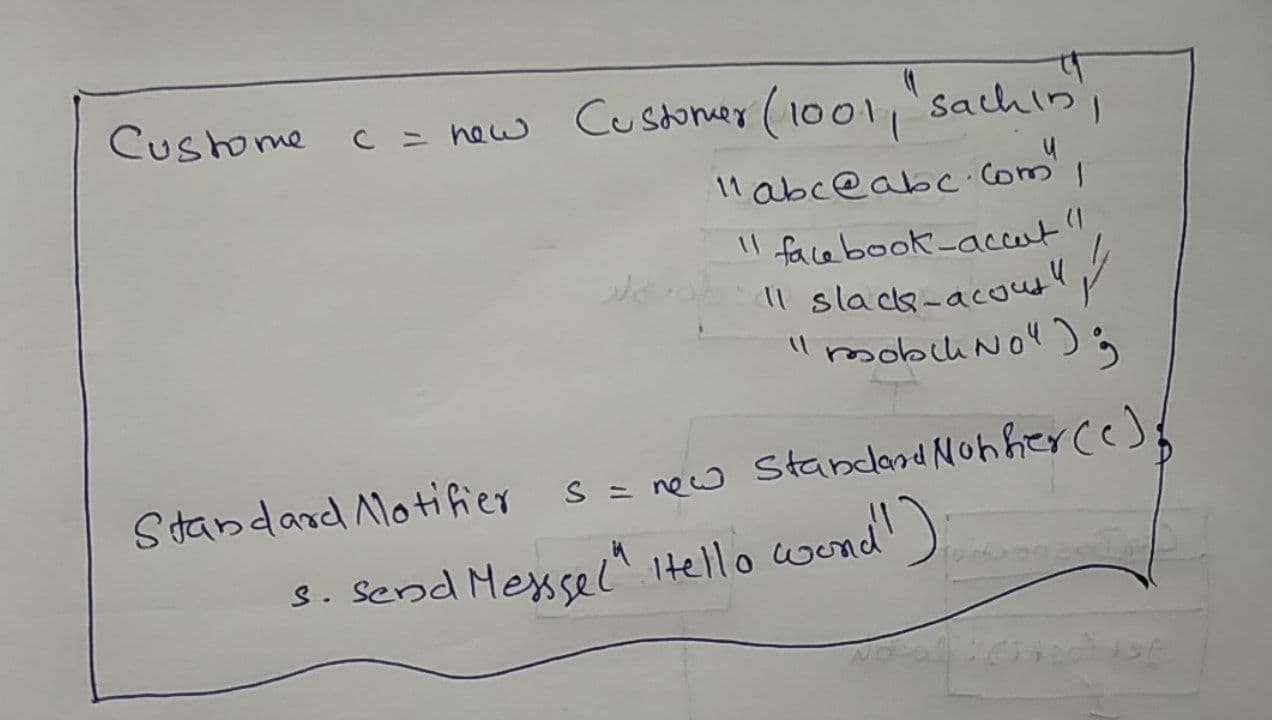 Custome c = new Customer(1001, "sachin",
"abc@abc.com",
"facebook-accut",
"slack-acout",
"mobileNo");
StandardNotifier s = new StandardNotifier(c);
s. sendMessge("Hello world")